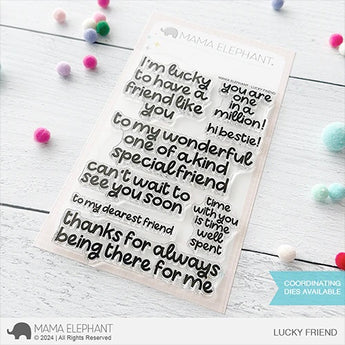 MAMA ELEPHANT.
MAMA ELEPHANT · LUCKY FRIEND
I'm lucky
to have a
friend like
you
you are
one
in a
million!
hi bestie!
to my wonderful
one of a kind
special friend
can't wait to
see you soon
time
with you
is time
well
spent
to my dearest friend
thanks for always
being there for me
COORDINATING
DIES AVAILABLE
MAMA ELEPHANT
© 2024 | All Rights Reserved
LUCKY FRIEND